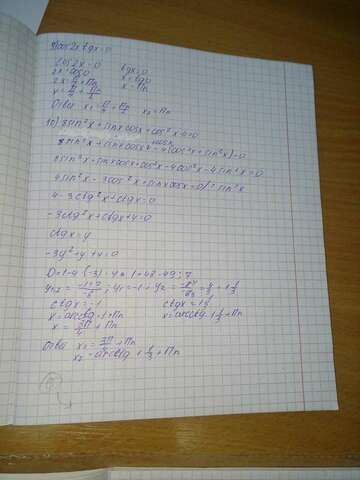 9) cos 2x · tgx = 0
cos 2x = 0 tgx = 0
2x = π/2 + πn x = πn
x = π/4 + πn/2
Ответ x₁ = π/4 + πn/2 x₂ = πn
10) 8sin²x + sinx cosx + cos²x - 4 = 0
8sin²x + sinx cosx + cos²x - 4(cos²x + sin²x) = 0
8sin²x + sinx cosx + cos²x - 4cos²x - 4sin²x = 0
4sin²x - 3cos²x + sinx cosx = 0 / : sin²x
4 - 3ctg²x + ctgx = 0
-3ctg²x + ctgx + 4 = 0
ctgx = y
-3y² + y + 4 = 0
D = 1 - 4 · (-3) · 4 = 1 + 48 = 49; 7
y₁,₂ = (-1 ± 7)/-6; y₁ = -1 y₂ =
ctgx = -1
x = arcctg - 1 + πn
x = 3π/4 + πn
Ответ x₁ = 3π/4 + πn
x₂ = arcctg 1 1/3 + πn